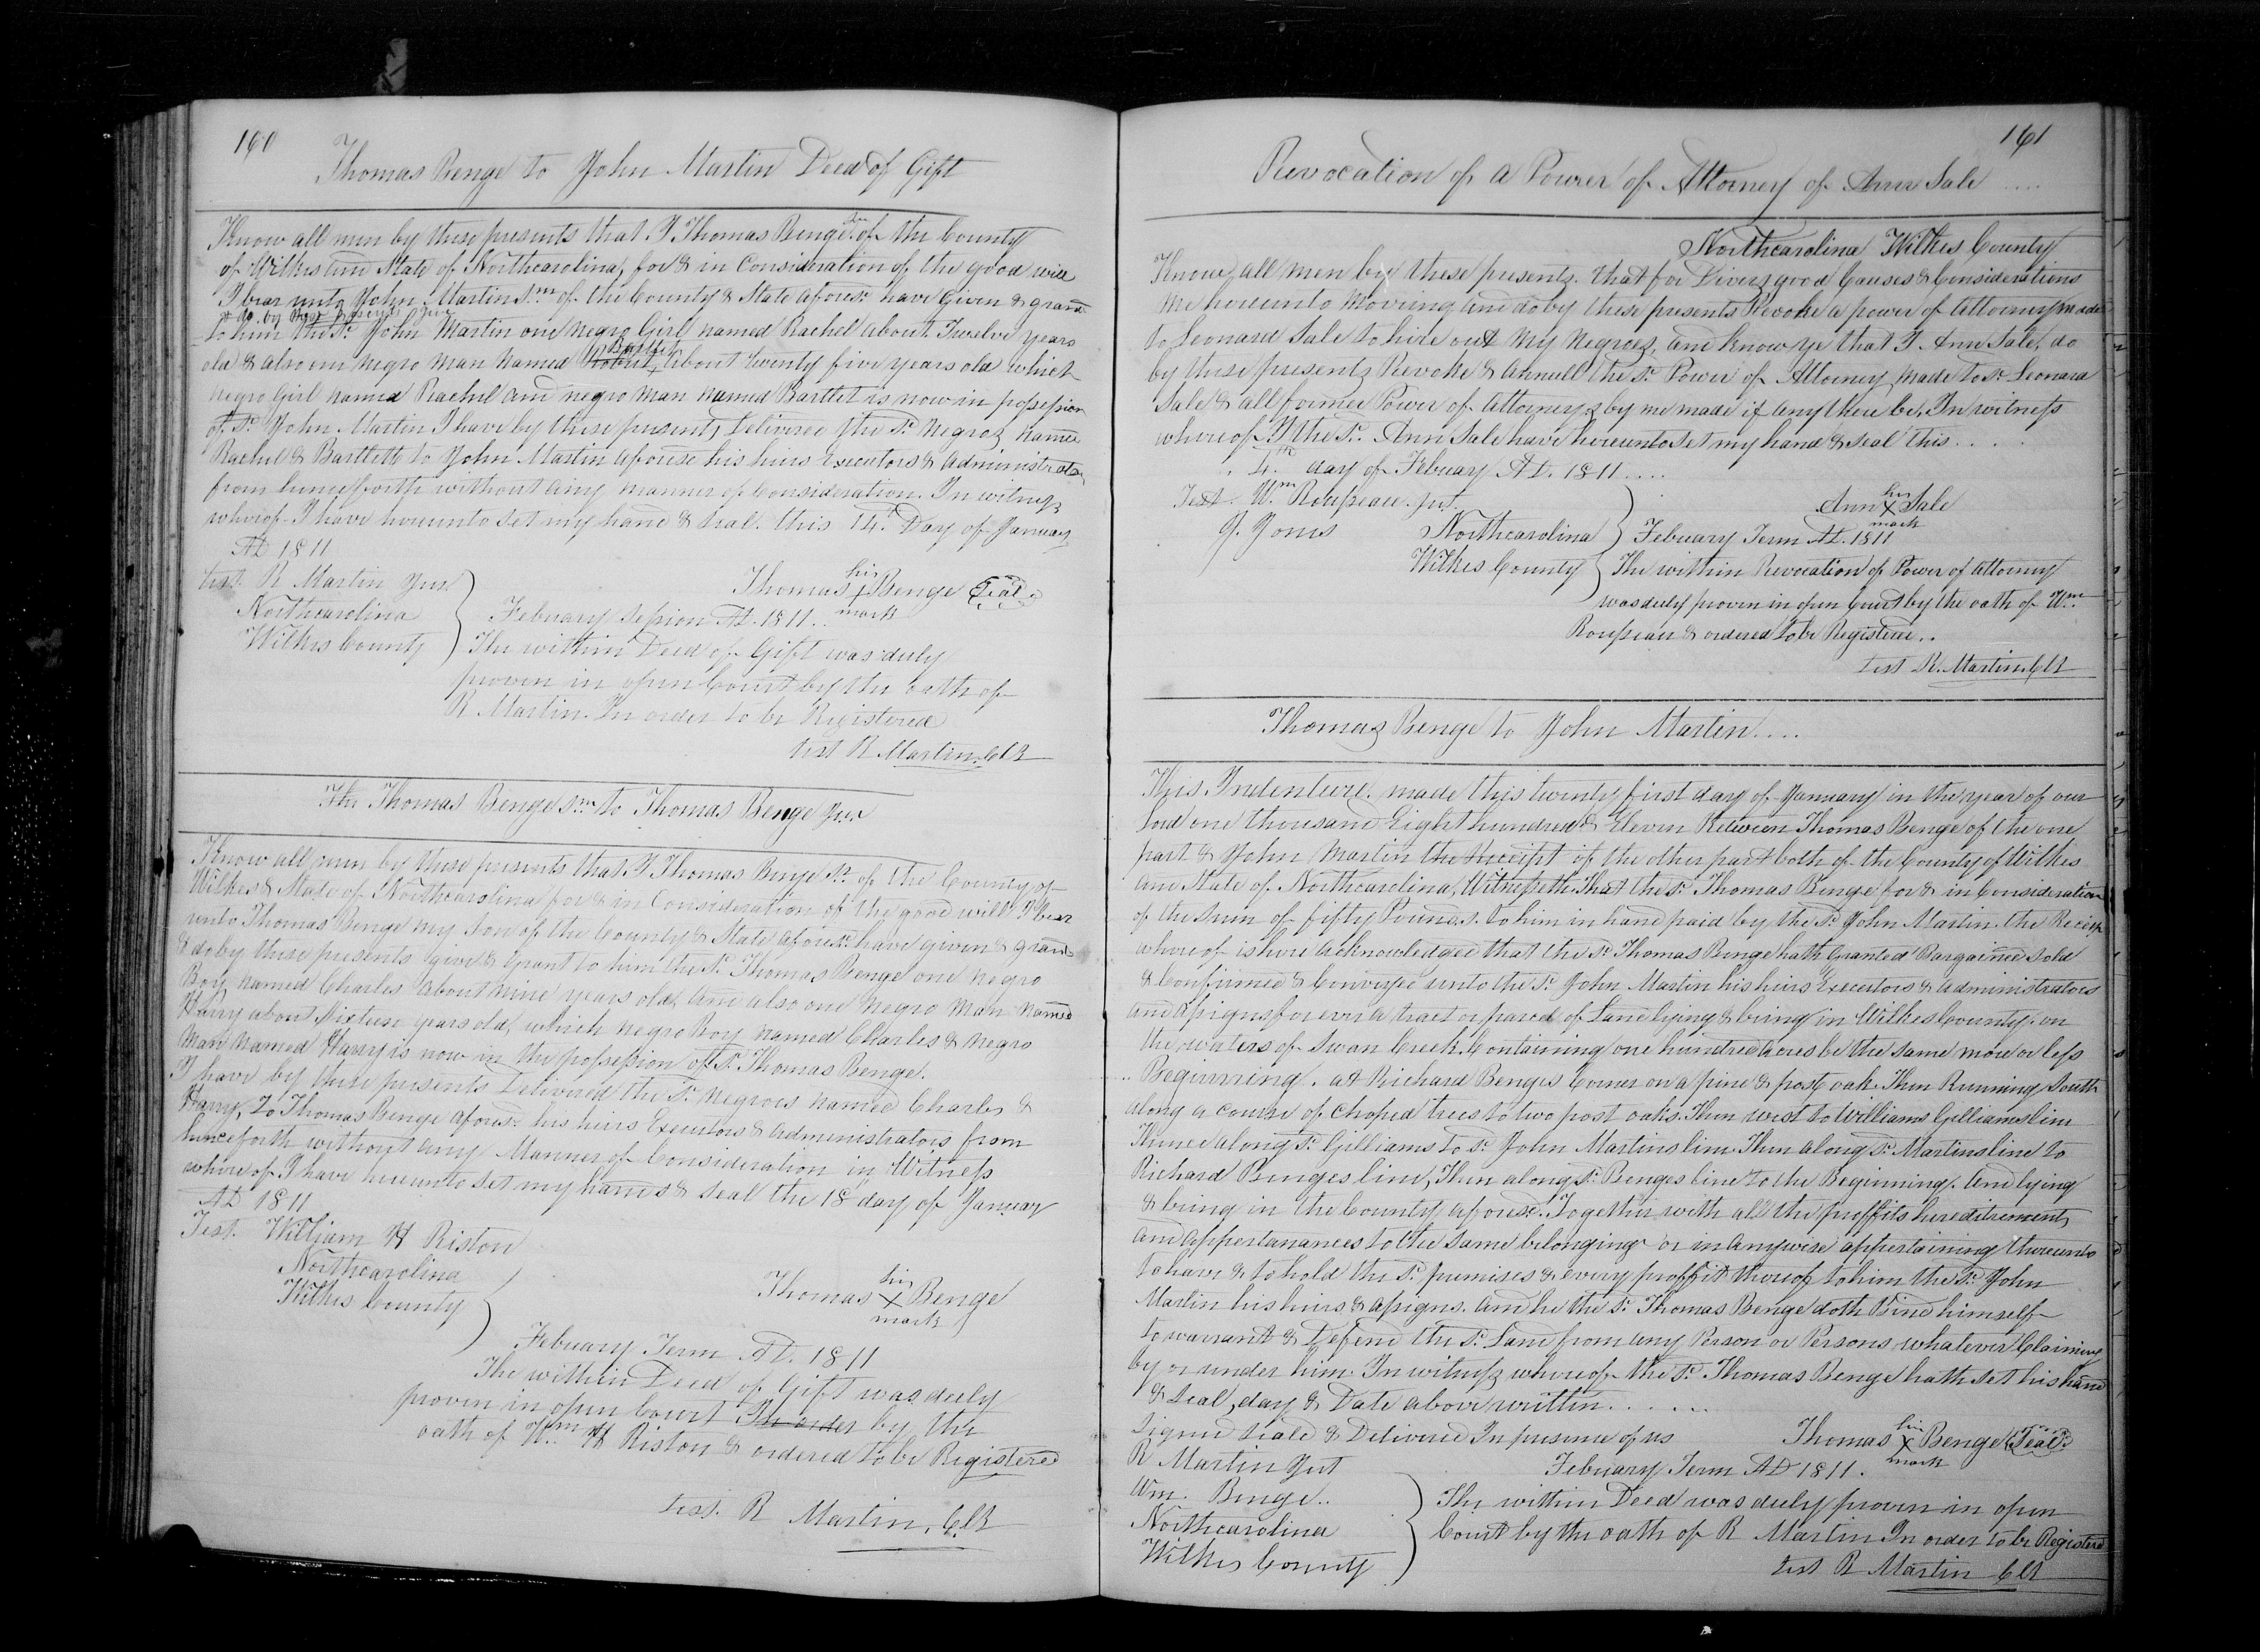 160
Thomas Benge to John Martin Deed of Gift
Know all men by these presents that I Thomas Benge Snr of the County
of Wilkes and State of Northcarolina, for & in Consideration of the good will
I bear unto John Martin Snr of the County & State aforesd have Given & grant
& do by these presents give
to him the sd John Martin one negro Girl named Rachel about Twelve years
old & also one negro man named Robert Bartlet about twenty five years old which
negro Girl named Rachel and negro man named Bartlet is now in possession
of sd John Martin I have by these presents Delivered the sd negroes named
Rachel & Bartlett to John Martin aforesd his heirs Executors & Administrators
from henceforth without any manner of Consideration. In witness
whereof I have hereunto set my hand & seal. this 14th Day of January
AD 1811
test. R Martin Jur
Thomas his X mark Benge Seal
Northcarolina
Wilkes County
Febuary Session AD. 1811..
The within Deed of Gift was duly
proven in open Court by the oath of
R Martin. In order to be Registered
test R Martin, Clk
The Thomas Benge Snr to Thomas Benge Jur
Know all men by these presents that I Thomas Benge Sr. of the County of
Wilkes & State of Northcarolina for & in Consideration of the good will I bear
unto Thomas Benge my Son of the County & State aforesd have given & grant
& do by these presents give & Grant to him the sd Thomas Benge one negro
Boy named Charles about nine years old, and also one negro man named
Harry about Sixteen years old, which negro Boy named Charles & negro
man named Harry is now in the possession of sd Thomas Benge.
I have by these presents Delivered the sd negroes named Charles &
Harry, To Thomas Benge aforesd his heirs Executors & Administrators from
henceforth without any Manner of Consideration in Witness
whereof I have hereunto set my hand & seal the 18th day of January
AD 1811
Test. William H Riston
Northcarolina
Wilkes County
Thomas his X mark Benge
Febuary Term AD. 1811
The within Deed of Gift was duly
proven in open Court In order by the
oath of Wm H Riston & ordered to be Registered
test. R Martin, Clk
161
Revocation of a Power of Attorney of Ann Sale ....
Northcarolina Wilkes County
Know all men by these presents. that for Divers good Causes & Considerations
me hereunto moving and do by these presents Revoke a power of Attorney made
to Leonard Sale to hire out my Negroes, and know ye that I Ann Sale, do
by these presents Revoke & Annull the sd Power of Attorney made to sd Leonard
Sale & all former Power of Attorneys by me made if any there be, In witness
whereof I the sd. Ann Sale have hereunto set my hand & seal this....
4th day of Febuary AD. 1811....
Test. Wm Rousseau. Jut.
Ann her X mark Sale
J. Jones
Northcarolina
Wilkes County
Febuary Term AD. 1811
The within Revocation of Power of Attorney
was duly proven in open Court by the oath of Wm
Rousseau & ordered to be Registered..
test R. Martin, Clk
Thomas Benge to John Martin....
This Indenture, made this twenty first day of January in the year of our
Lord one thousand Eight hundred & Eleven Between Thomas Benge of the one
part & John Martin the Receipt of the other part both of the County of Wilkes
and State of Northcarolina, Witnesseth That the sd Thomas Benge for & in Consideration
of the sum of fifty Pounds. to him in hand paid by the sd John Martin the Receipt
whereof is here Acknowledged that the sd Thomas Benge hath Granted Bargained Sold
& Confirmed & Conveyed unto the sd John Martin his heirs Executors & Administrators
and Assigns forever a tract or parcel of Land lying & being in Wilkes County, on
the waters of Swan Creek. Containing one hundred Acres be the same more or less
Beginning. at Richard Benges Corner on a pine & post oak. Then Running South
along a course of choped trees to two post oaks. Then west to Williams Gilliams line
Thence along sd Gilliams to sd John Martins line Then along sd Martins line to
Richard Benges line, Then along sd Benges line to the Beginning. And lying
& being in the County aforesd. Together with all the proffits hereditements
and Appertanances to the same belonging or in anywise appertaining thereunto
to have & to hold the sd premises & every proffit thereof to him the sd John
Martin his heirs & Assigns. And he the sd Thomas Benge doth Bind himself
to warrant & Defend the sd Land from any Person or Persons whatever Claiming
by or under him. In witness whereof the sd Thomas Benge hath set his hand
& Seal, day & Date above written......
Signed Seald & Delivered In presence of us
Thomas his X mark Benge Seal
R Martin Jut
Wm. Benge..
Northcarolina
Wilkes County
Febuary Term AD 1811.
The within Deed was duly proven in open
Court by the oath of R Martin In order to be Registered
test R Martin Clk